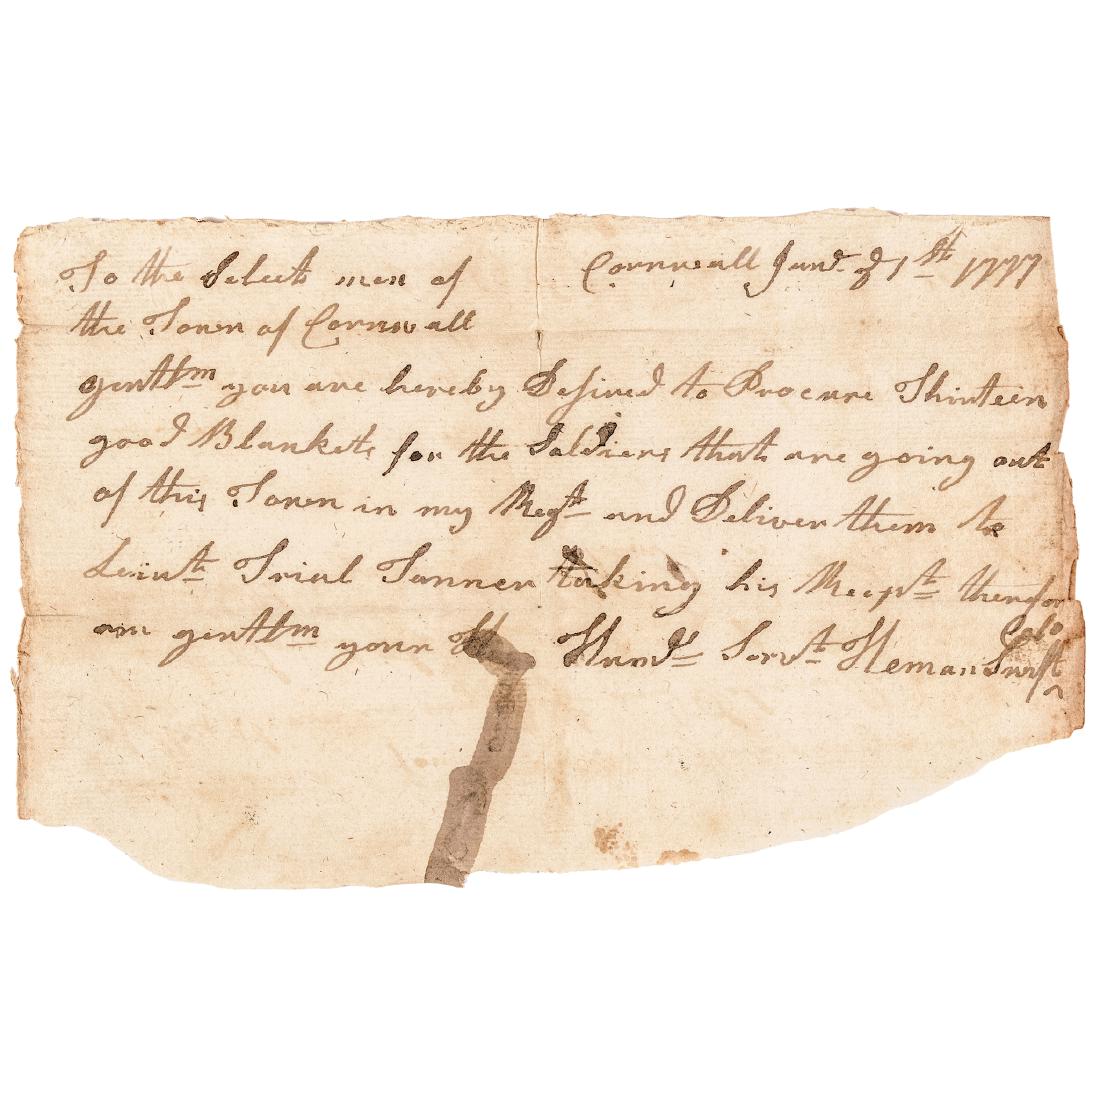 To the Select men of Cornwall Junᵉ yᵉ 1ˢᵗ 1777
the Town of Cornwall
gentlᵐ you are hereby Desired to Procure Thirteen
good Blankets for the Soldiers that are going out
of this Town in my Regᵗ and Deliver them to
Leiuᵗ Trial Tanner taking his Recpᵗ therefor
am gentlᵐ your Humᵉ Servᵗ Heman Swift
Colo